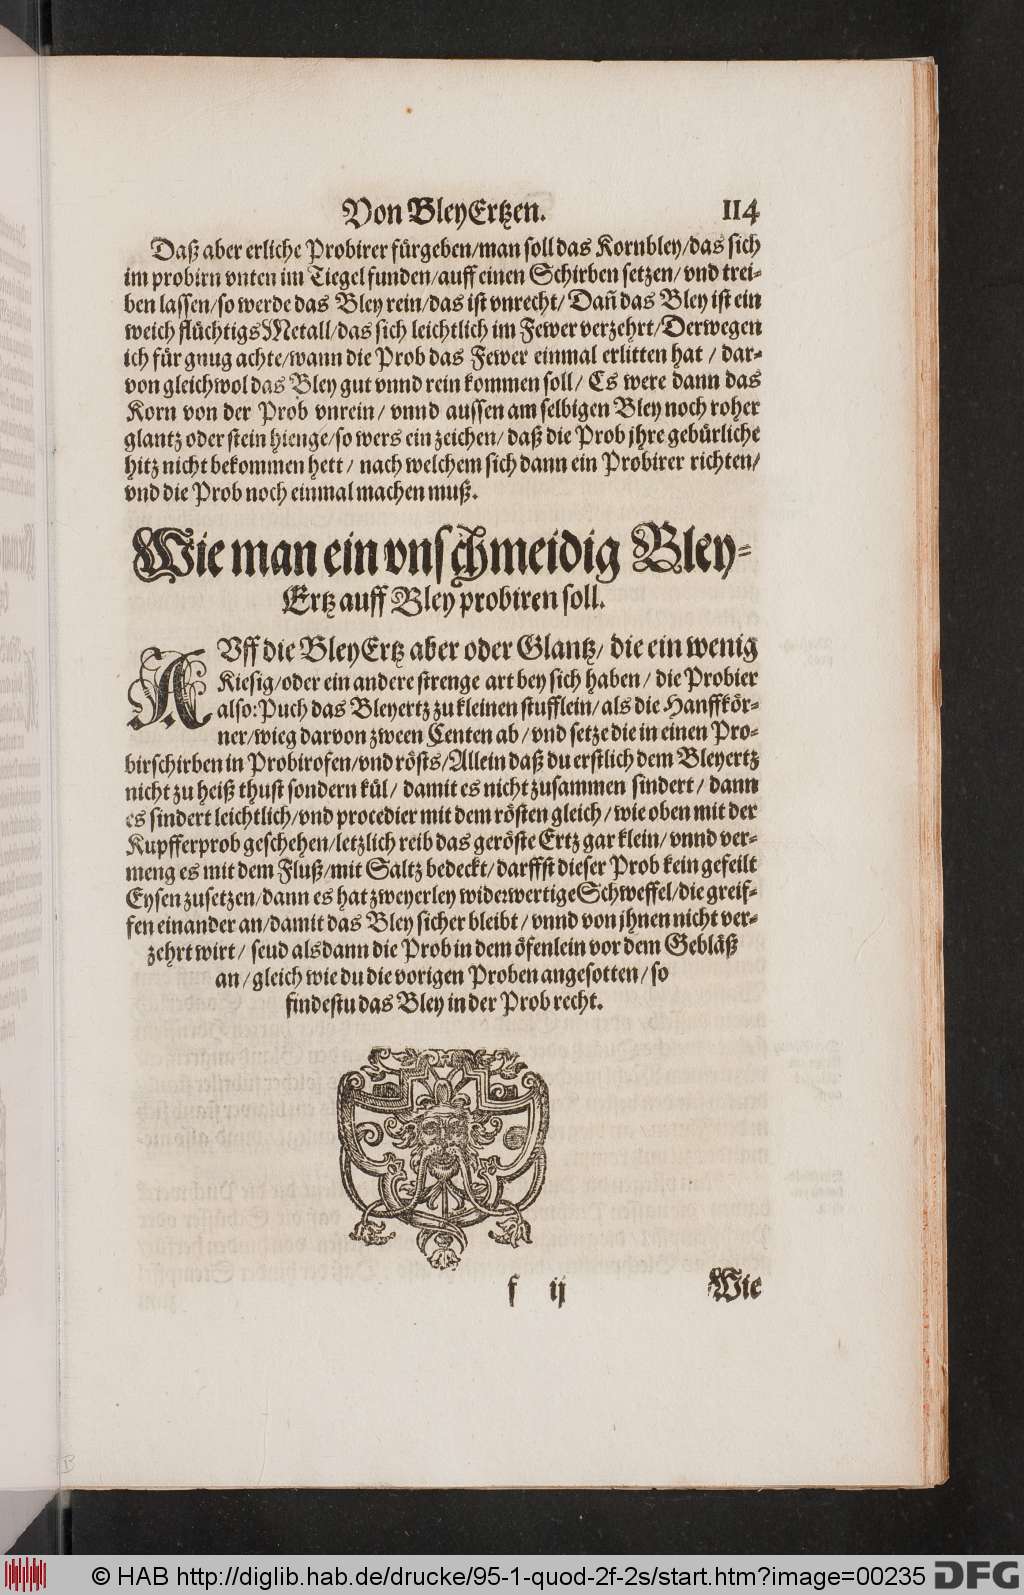 Von BleyErtzen. 114
Daß aber erliche Probirer fürgeben/man soll das Kornbley/das sich
im probirn vnten im Tiegel funden/auff einen Schirben setzen/ vnd trei-
ben lassen/so werde das Bley rein/das ist vnrecht/ Dañ das Bley ist ein
weich flüchtigs Metall/das sich leichtlich im Fewer verzehrt/Derwegen
ich für gnug achte/wann die Prob das Fewer einmal erlitten hat / dar-
von gleichwol das Bley gut vnnd rein kommen soll/ Es were dann das
Korn von der Prob vnrein/ vnnd aussen am selbigen Bley noch roher
glantz oder stein hienge/so wers ein zeichen/ daß die Prob jhre gebürliche
hitz nicht bekommen hett / nach welchem sich dann ein Probirer richten/
vnd die Prob noch einmal machen muß.
Wie man ein vnschmeidig Bley-
Ertz auff Bley probiren soll.
AVff die BleyErtz aber oder Glantz/ die ein wenig
Kiesig/oder ein andere strenge art bey sich haben / die Probier
also: Puch das Bleyertz zu kleinen stufflein/als die Hanffkör-
ner/wieg darvon zween Centen ab/vnd setze die in einen Pro-
birschirben in Probirofen/vnd rösts/Allein daß du erstlich dem Bleyertz
nicht zu heiß thust sondern kül/ damit es nicht zusammen sindert/ dann
es sindert leichtlich/vnd procedier mit dem rösten gleich/wie oben mit der
Kupfferprob geschehen/letzlich reib das geröste Ertz gar klein/vnnd ver-
meng es mit dem Fluß/mit Saltz bedeckt/darffst dieser Prob kein gefeilt
Eysen zusetzen/dann es hat zweyerley widerwertige Schweffel/die greif-
fen einander an/damit das Bley sicher bleibt/ vnnd von jhnen nicht ver-
zehrt wirt/ seud alsdann die Prob in dem öfenlein vor dem Gebläß
an/gleich wie du die vorigen Proben angesotten/so
findestu das Bley in der Prob recht.
f ij Wie
© HAB http://diglib.hab.de/drucke/95-1-quod-2f-2s/start.htm?image=00235 DFG